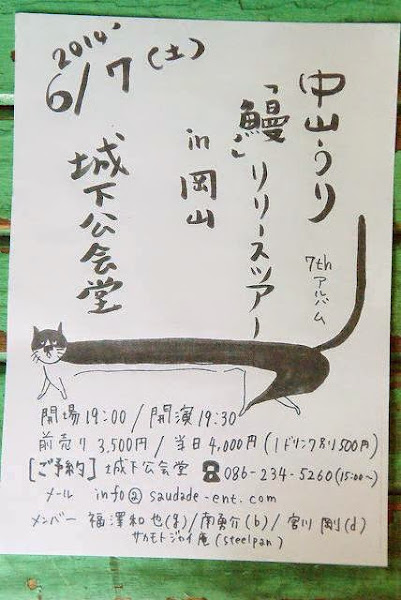 2014'
6/7(土)
中山うり
7thアルバム
「鰻」リリースツアー
in 岡山
城下公会堂
開場19:00 / 開演19:30
前売り 3,500円 / 当日 4,000円 (1ドリンク別り500円)
[ご予約] 城下公会堂 ☎ 086-234-5260 (15:00〜)
メール info@saudade-ent.com
メンバー 福澤和也(g) / 南勇介(b) / 宮川剛(d)
サカモトジョイ庵 (steelpan)